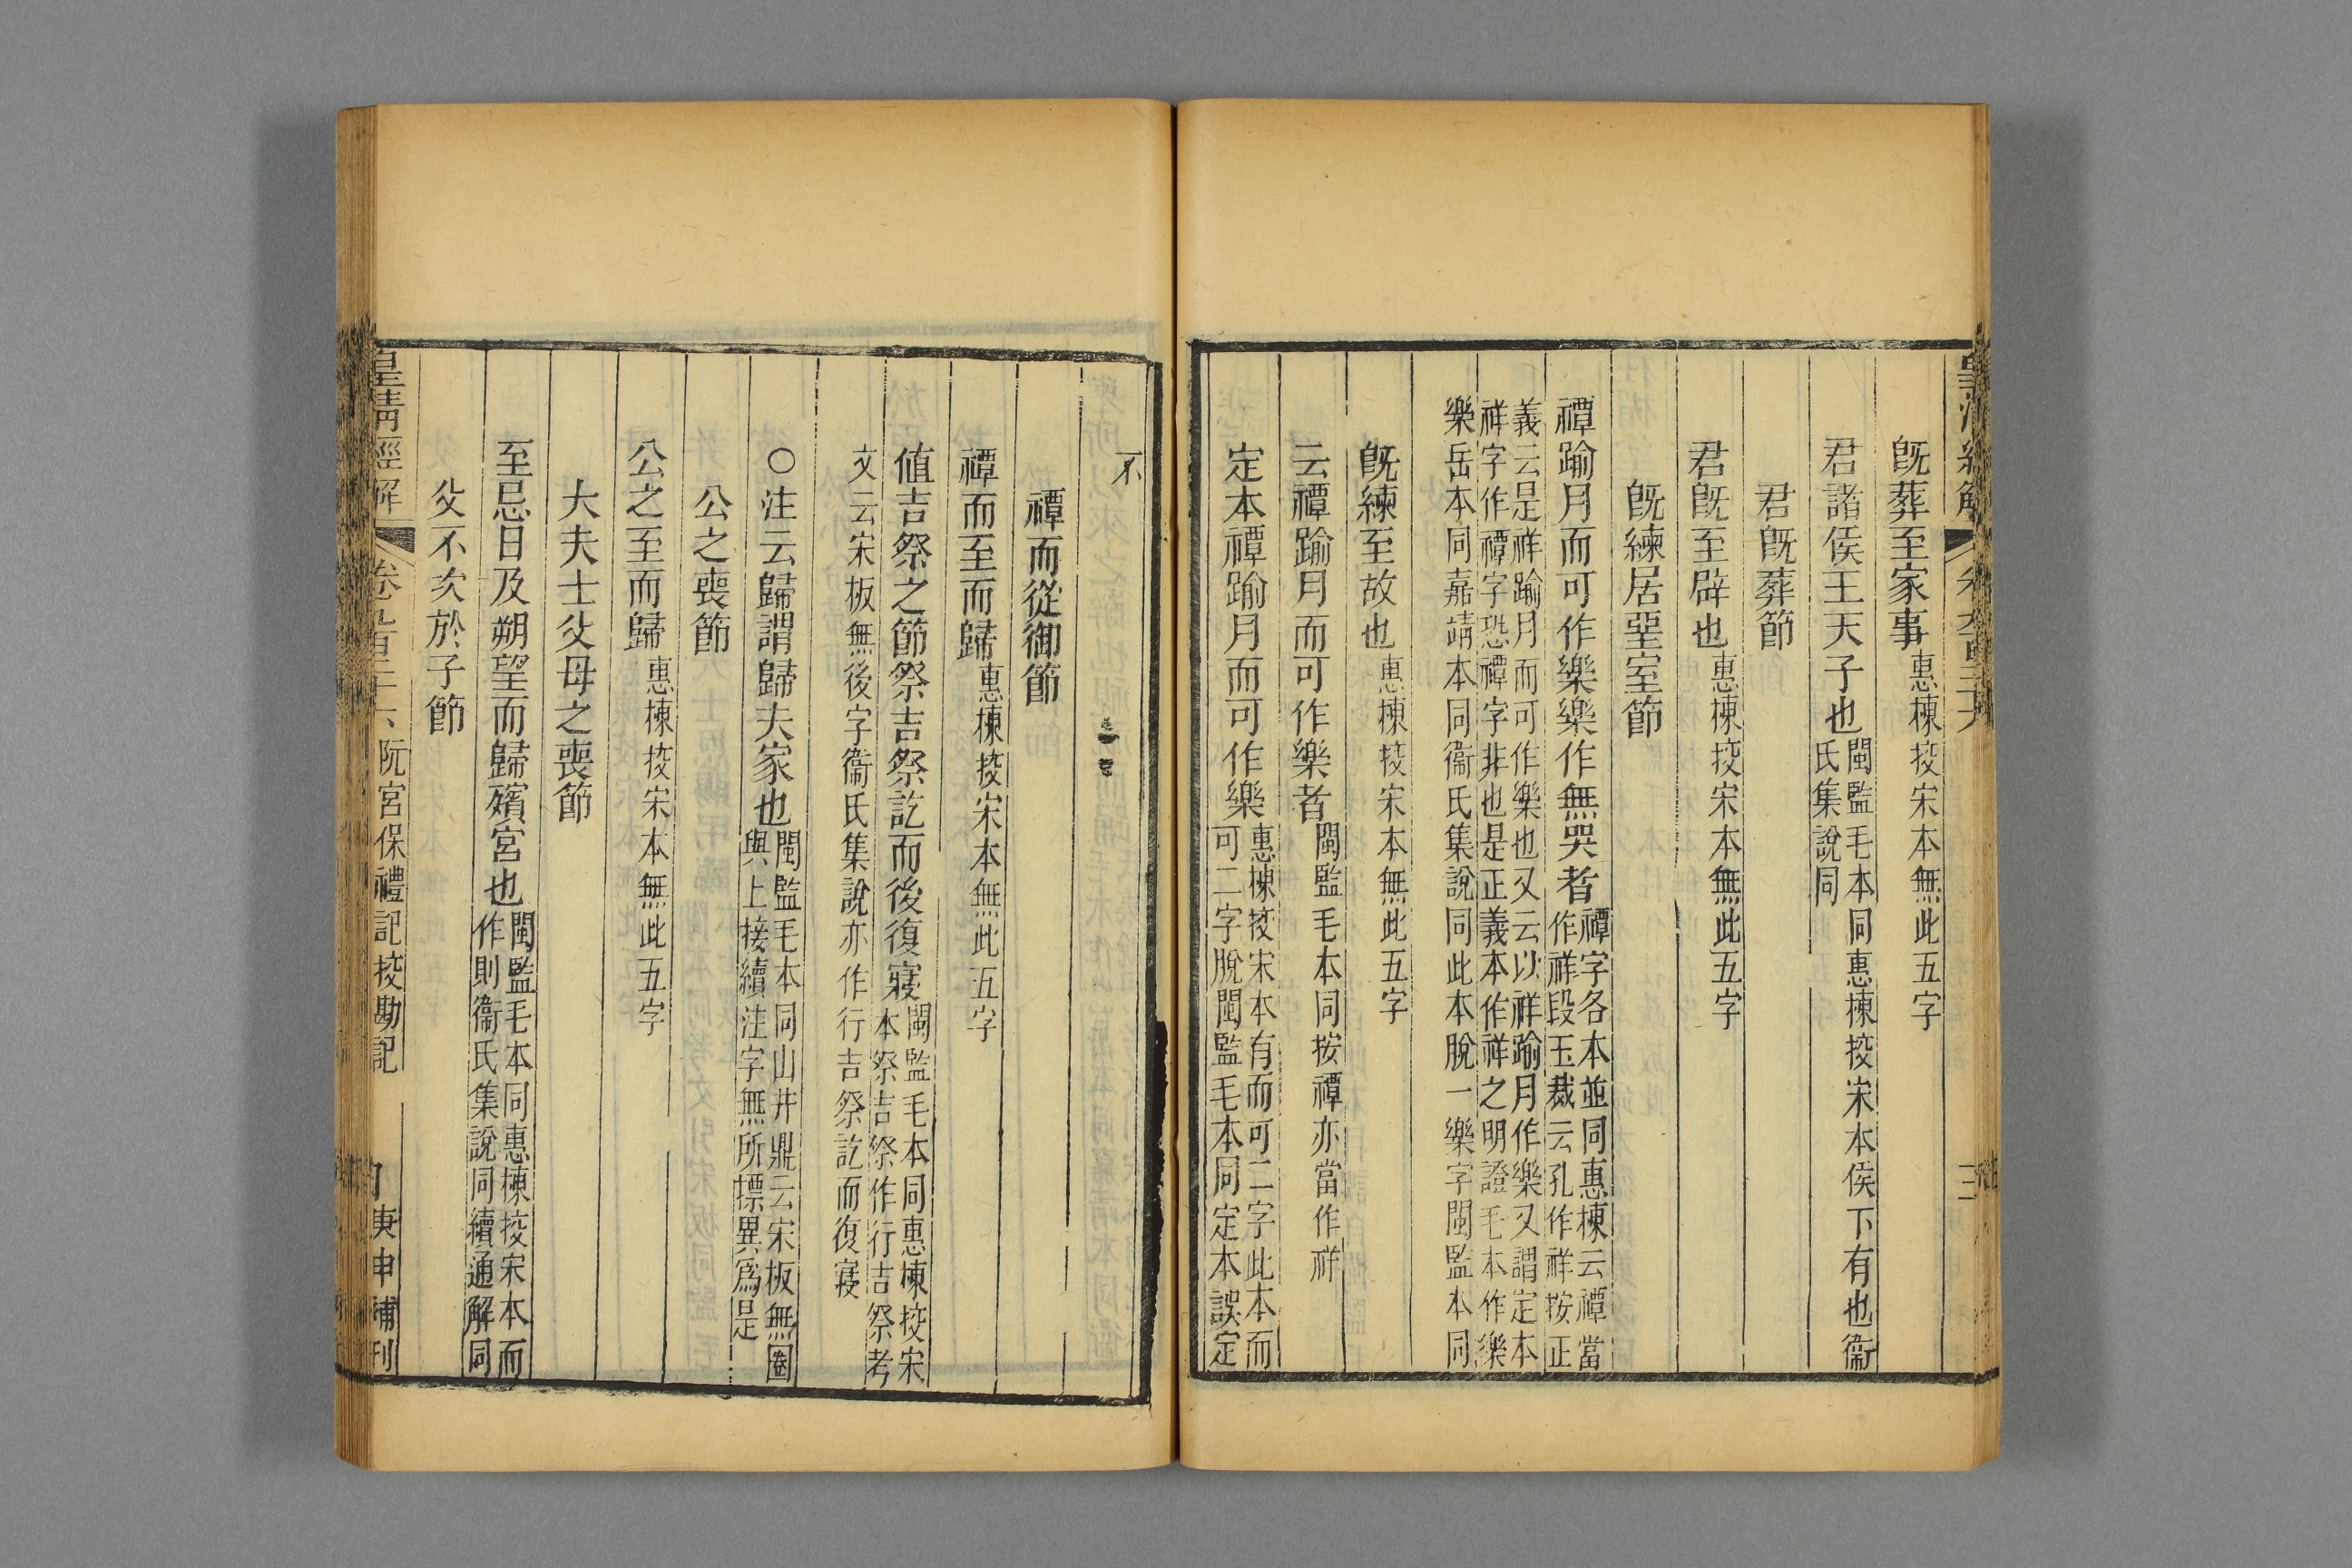 皇清經解 卷九百三六 三
既葬至家事惠棟挍宋本無此五字
君諸侯王天子也閩監毛本同惠棟挍宋本侯下有也衞
氏集說同
君既葬節
君既至辟也惠棟挍宋本無此五字
既練居堊室節
禫踰月而可作樂樂作無哭者禫字各本並同惠棟云禫當
作祥段玉裁云孔作祥按正
義云是祥踰月而可作樂也又云以祥踰月作樂又謂定本
祥字作禫字恐禫字非也是正義本作祥之明證毛本作樂
樂岳本同嘉靖本同衞氏集說同此本脫一樂字閩監本同
既練至故也惠棟挍宋本無此五字
云禫踰月而可作樂者閩監毛本同按禫亦當作祥
定本禫踰月而可作樂惠棟挍宋本有而可二字此本而
可二字脫閩監毛本同定本誤定
不
禫而從御節
禫而至而歸惠棟挍宋本無此五字
値吉祭之節祭吉祭訖而後復寢閩監毛本同惠棟挍宋
本祭吉祭作行吉祭考
文云宋板無後字衞氏集說亦作行吉祭訖而復寢
○注云歸謂歸夫家也閩監毛本同山井鼎云宋板無圈
與上接續注字無所摽異爲是
公之喪節
公之至而歸惠棟挍宋本無此五字
大夫士父母之喪節
至忌日及朔望而歸殯宮也閩監毛本同惠棟挍宋本而
作則衞氏集說同續通解同
父不次於子節
皇清經解 卷九百三六 阮宮保禮記挍勘記 庚申補刊